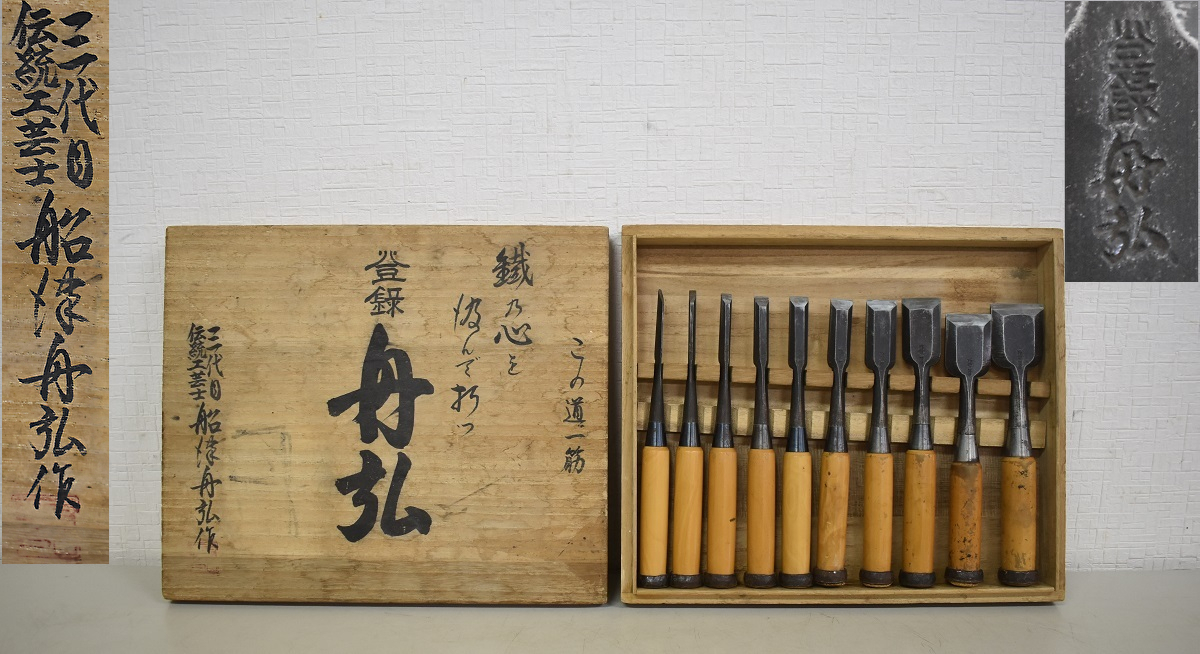 三代目
伝統工芸士
船津舟弘作
この道一筋
鐵乃心を
汲んで打つ
登録
舟弘
三代目
伝統工芸士
船津舟弘作
登録
舟弘